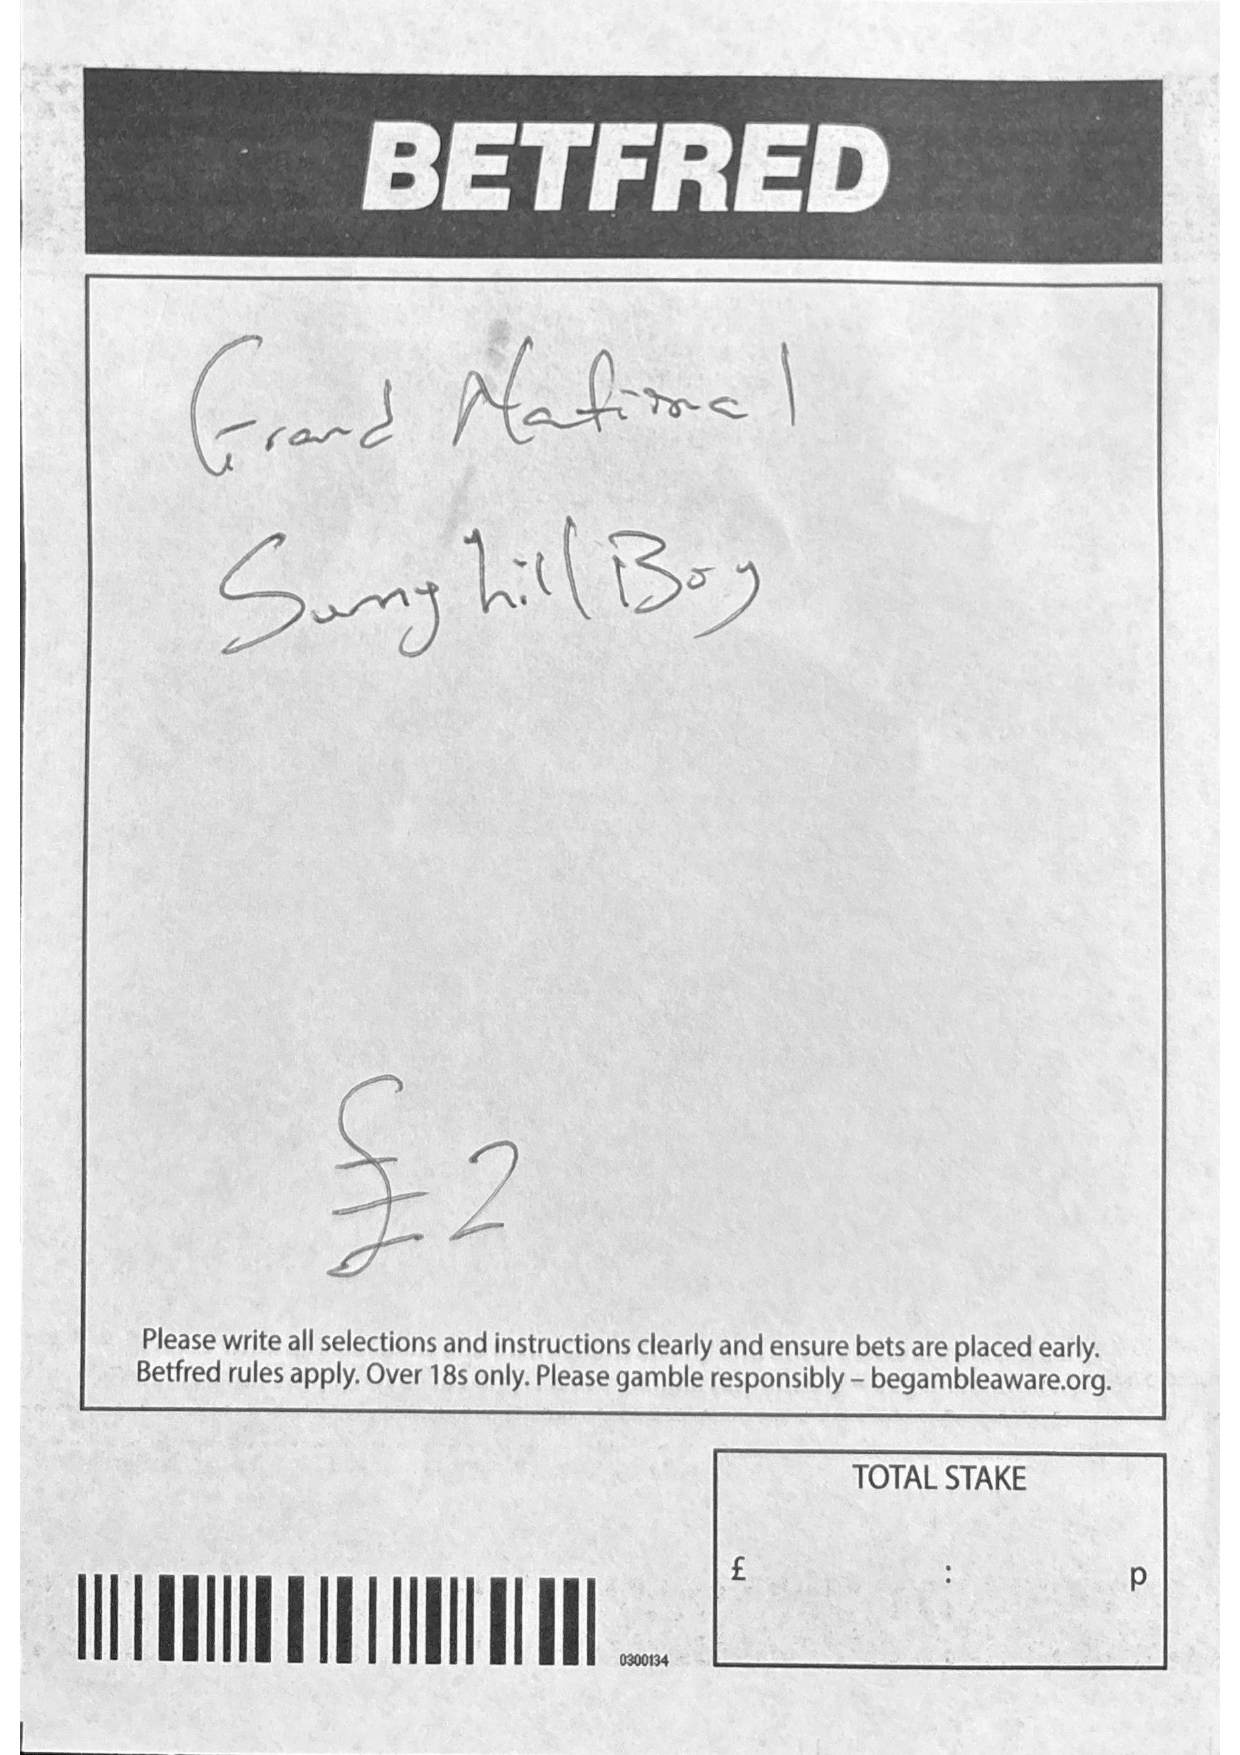 BETFRED
Grand National
Sunnyhill Boy
£2
Please write all selections and instructions clearly and ensure bets are placed early.
Betfred rules apply. Over 18s only. Please gamble responsibly – begambleaware.org.
TOTAL STAKE
£ : p
0300134